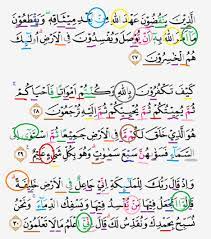 الَّذِينَ يَنْقُضُونَ عَهْدَ اللَّهِ مِنْ بَعْدِ مِيثَاقِهِ وَيَقْطَعُونَ
مَا أَمَرَ اللَّهُ بِهِ أَنْ يُوصَلَ وَيُفْسِدُونَ فِي الْأَرْضِ أُولَٰئِكَ
هُمُ الْخَٰسِرُونَ ٢٧
كَيْفَ تَكْفُرُونَ بِاللَّهِ وَكُنْتُمْ أَمْوَاتًا فَأَحْيَاكُمْ
ثُمَّ يُمِيتُكُمْ ثُمَّ يُحْيِيكُمْ ثُمَّ إِلَيْهِ تُرْجَعُونَ ٢٨
هُوَ الَّذِي خَلَقَ لَكُمْ مَا فِي الْأَرْضِ جَمِيعًا ثُمَّ اسْتَوَىٰ إِلَى
السَّمَاءِ فَسَوَّىٰهُنَّ سَبْعَ سَمَٰوَاتٍ وَهُوَ بِكُلِّ شَيْءٍ عَلِيمٌ ٢٩
وَإِذْ قَالَ رَبُّكَ لِلْمَلَٰئِكَةِ إِنِّي جَاعِلٌ فِي الْأَرْضِ خَلِيفَةً
قَالُوا أَتَجْعَلُ فِيهَا مَنْ يُفْسِدُ فِيهَا وَيَسْفِكُ الدِّمَاءَ وَنَحْنُ
نُسَبِّحُ بِحَمْدِكَ وَنُقَدِّسُ لَكَ قَالَ إِنِّي أَعْلَمُ مَا لَا تَعْلَمُونَ ٣٠